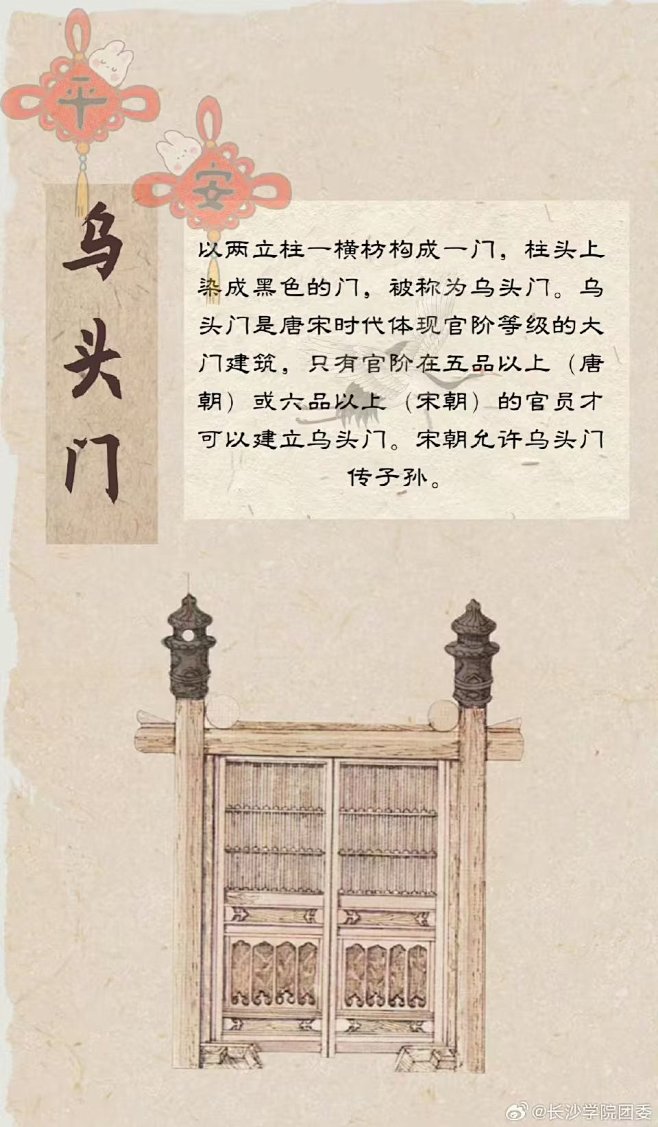 平
安
乌头门
以两立柱一横枋构成一门，柱头上
染成黑色的门，被称为乌头门。乌
头门是唐宋时代体现官阶等级的大
门建筑，只有官阶在五品以上（唐
朝）或六品以上（宋朝）的官员才
可以建立乌头门。宋朝允许乌头门
传子孙。
@长沙学院团委